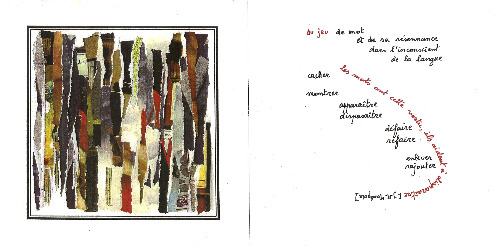 Du jeu de mot
et de sa résonnance
dans l'inconscient
de la langue
cacher
montrer
apparaître
disparaître
défaire
refaire
enlever
rajouter
les mots ont cette vertu, ils aident à